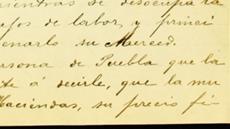 mientras se desocupa la
efos de labor, y princi
enarlo su Merced.
ersona de Puebla que la
te á decirle, que la mu
Haciendas, su precio fi